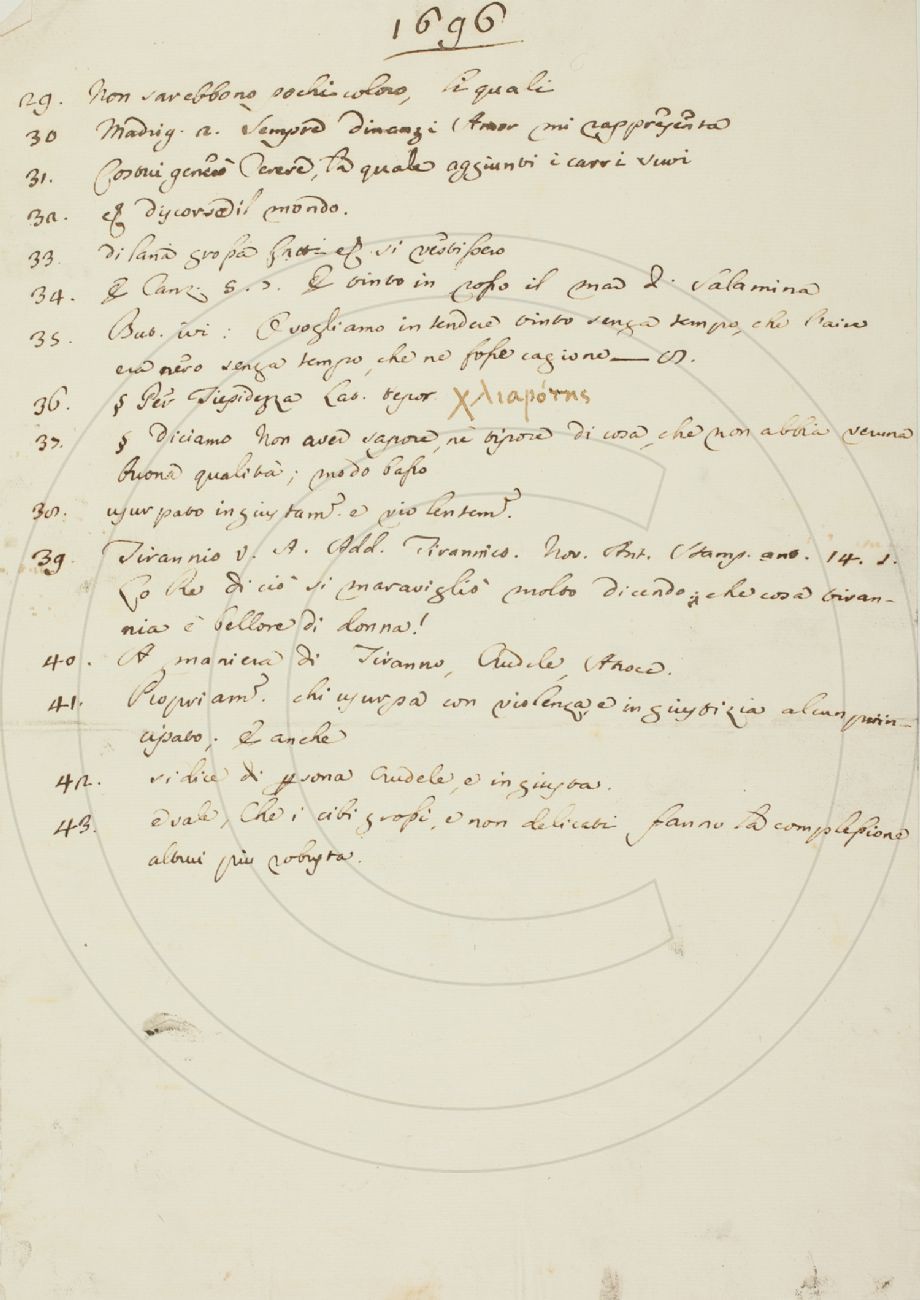 1696
29. Non sarebbono pochi coloro, li quali
30 Madrig. 2. Sempre dinanzi Amor mi rappresenta
31. Costui generò Venere, la quale aggiunti i carri
32. & discorse il mondo.
33 di lana grossa fatti & si vestissero
34. E Canz. 5. 7. E tinto in rosso il mar di Salamina
35. But. ivi: E vogliamo intendere tinto senza tempo, che l'aire
era nero senza tempo, che ne fosse cagione —
36. § Per Tiepidezza Lat. tepor χλιαρότης
37. § Diciamo Non aver sapore, nè tipore di cosa, che non abbia veruna
buona qualità; modo basso
38. usurpato ingiustam.e e violentem.e
39 Tirannio v. A. Add. Tirannico. Nov. Ant. Stamp. ant. 14. 1.
Lo Re di ciò si maravigliò molto dicendo; che cosa tiran-
nia è bellore di donna!
40. A maniera di Tiranno, Crudele, Atroce.
41. Propriam.e chi usurpa con violenza, e ingiustizia alcun prin-
cipato; E anche
42. si dice di psona Crudele, e ingiusta.
43. e vale, Che i cibi grossi, e non delicati fanno la complessione
altrui più robusta.